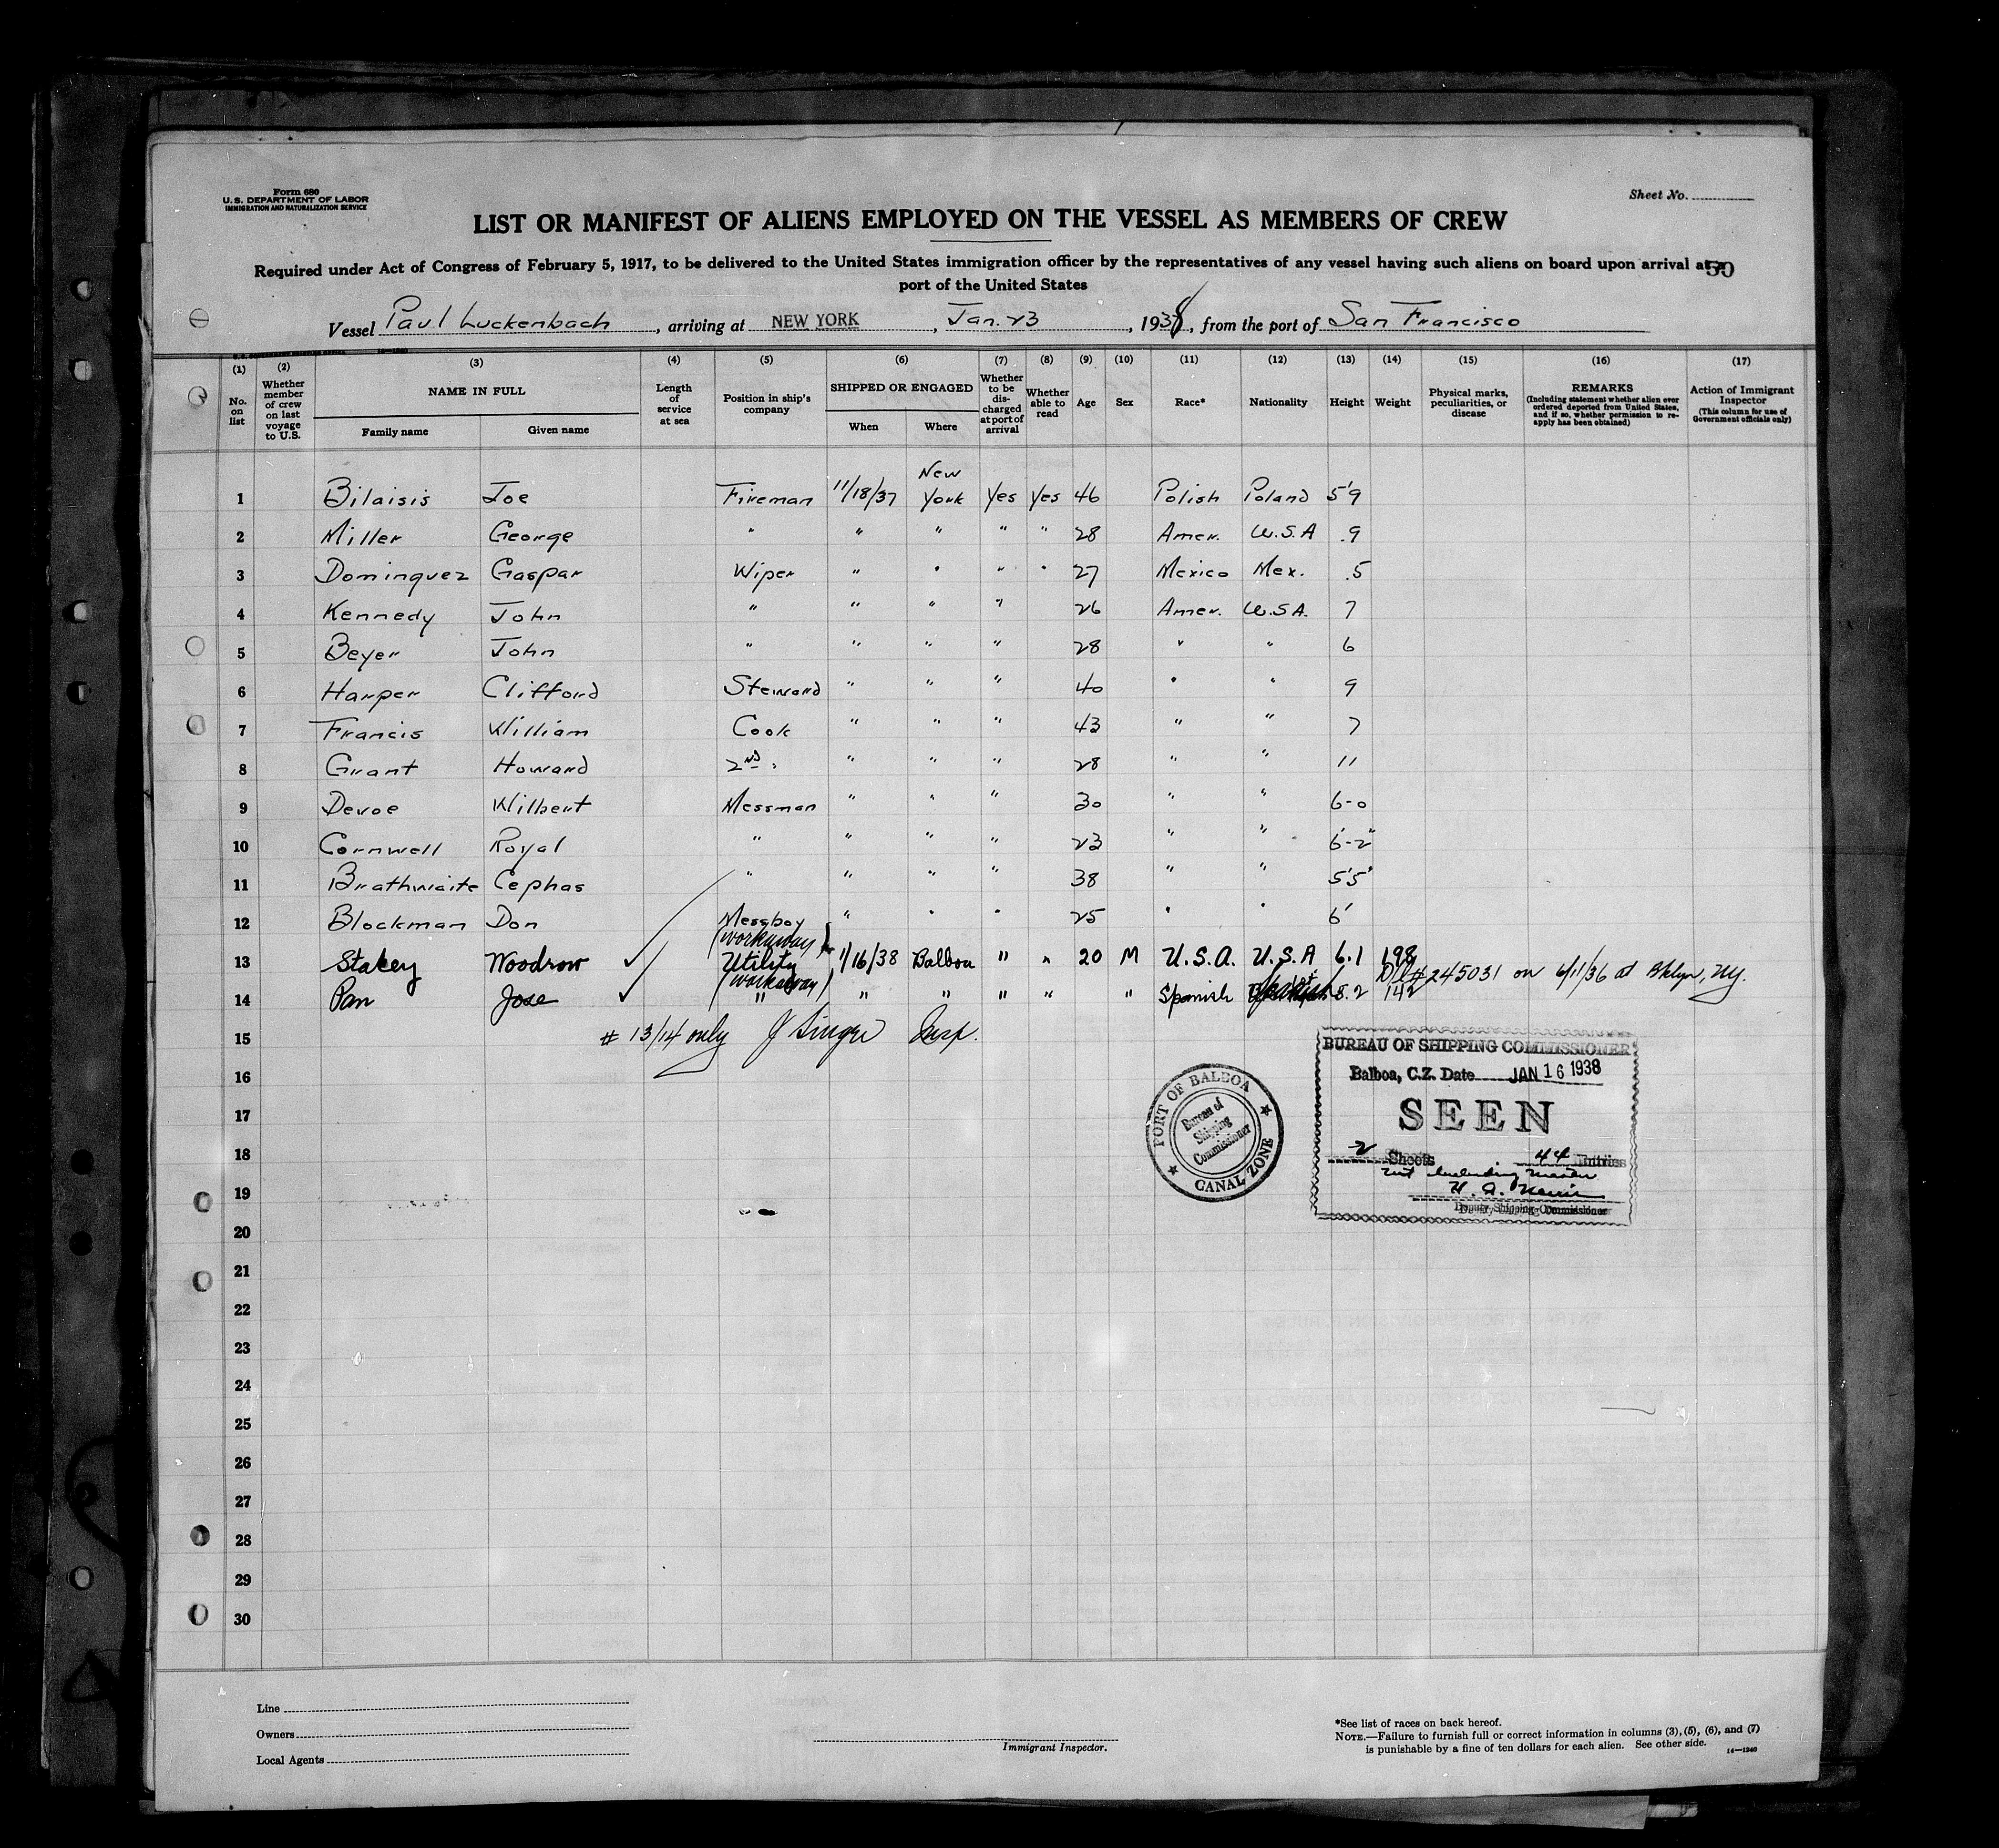 Form 680
U.S. DEPARTMENT OF LABOR
IMMIGRATION AND NATURALIZATION SERVICE
Sheet No.
LIST OR MANIFEST OF ALIENS EMPLOYED ON THE VESSEL AS MEMBERS OF CREW
Required under Act of Congress of February 5, 1917, to be delivered to the United States immigration officer by the representatives of any vessel having such aliens on board upon arrival at a
50
port of the United States
Vessel Paul Luckenbach, arriving at NEW YORK, Jan. 23, 1938, from the port of San Francisco
(1) (2) (3) (4) (5) (6) (7) (8) (9) (10) (11) (12) (13) (14) (15) (16) (17)
No. on list
Whether member of crew on last voyage to U.S.
NAME IN FULL
Family name Given name
Length of service at sea
Position in ship's company
SHIPPED OR ENGAGED
When Where
Whether to be discharged at port of arrival
Whether able to read
Age
Sex
Race*
Nationality
Height
Weight
Physical marks, peculiarities, or disease
REMARKS
(Including statement whether alien ever ordered deported from United States, and if so, whether permission to reapply has been obtained)
Action of Immigrant Inspector
(This column for use of Government officials only)
1 Bilaisis Joe Fireman 11/18/37 New York Yes Yes 46 Polish Poland 5'9
2 Miller George " " " " " 28 Amer. U.S.A .9
3 Dominquez Gaspar Wiper " " " " 27 Mexico Mex. .5
4 Kennedy John " " " " 26 Amer. U.S.A. 7
5 Beyer John " " " " 28 " " 6
6 Harper Clifford Steward " " " 40 " " 9
7 Francis William Cook " " " 43 " " 7
8 Grant Howard 2ND " " " " 28 " " 11
9 Devoe Wilbert Messman " " " 30 " " 6-0
10 Cornwell Royal " " " " 23 " " 6'-2"
11 Brathwaite Cephas " " " " 38 " " 5'5"
12 Blockman Don Messboy " " " 25 " " 6'
13 Stakey Woodrow ✓ (workaway) Utility 1/16/38 Balboa " " 20 M U.S.A. U.S.A 6.1 198
14 Pan Jose ✓ (workaway) " " " " " " Spanish 5.2 142 #245031 on 6/11/36 at Bklyn, NY.
15 # 13/14 only J Singer Insp.
16
17
18
19
20
21
22
23
24
25
26
27
28
29
30
PORT OF BALBOA
Bureau of Shipping Commissioner
CANAL ZONE
BUREAU OF SHIPPING COMMISSIONER
Balboa, C.Z. Date JAN 16 1938
SEEN
2 Sheets 44 Entries
not including master
Deputy Shipping Commissioner
Line
Owners
Local Agents
Immigrant Inspector.
*See list of races on back hereof.
NOTE.—Failure to furnish full or correct information in columns (3), (5), (6), and (7)
is punishable by a fine of ten dollars for each alien. See other side.
14—1240